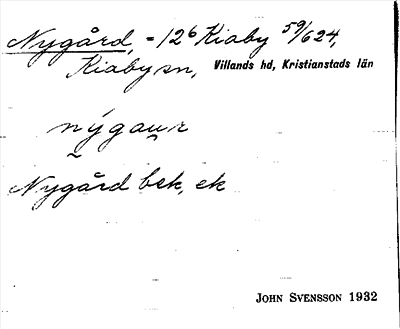 Nygård, = 12⁶ Kiaby 59/624,
Kiaby sn, Villands hd, Kristianstads län
nýgau̯r
Nygård bek, ek
JOHN SVENSSON 1932